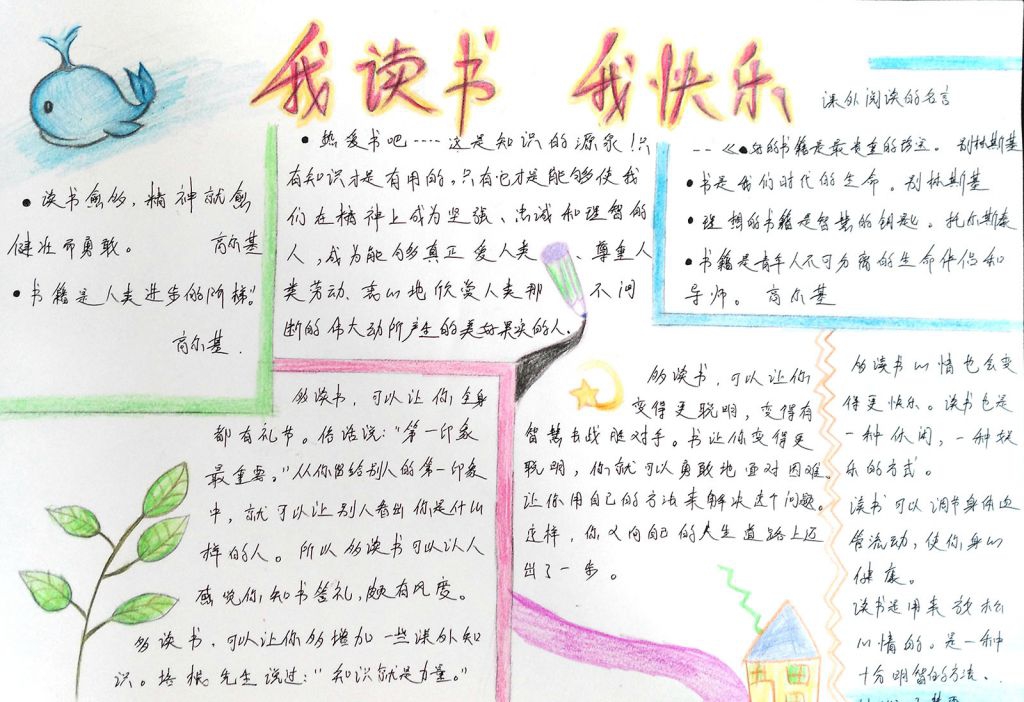 我读书 我快乐
•读书愈多,精神就愈
健壮而勇敢。 高尔基
•书籍是人类进步的阶梯。"
高尔基.
•热爱书吧----这是知识的源泉!只
有知识才是有用的,只有它才是能够使我
们在精神上成为坚强、忠诚和理智的
人,成为能够真正爱人类、尊重人
类劳动、衷心地欣赏人类那不间
断的伟大劳动所产生的美好果实的人.
课外阅读的名言
--《•好的书籍是最贵重的珍宝。 别林斯基
•书是我们时代的生命。别林斯基
•理想的书籍是智慧的钥匙。托尔斯泰
•书籍是青年人不可分离的生命伴侣和
导师。 高尔基
多读书,可以让你全身
都有礼节。俗话说:"第一印象
最重要。"从你留给别人的第一印象
中,就可以让别人看出你是什么
样的人。所以多读书可以让人
感觉你知书答礼,颇有风度。
多读书,可以让你多增加一些课外知
识。培根先生说过:"知识就是力量。"
多读书,可以让你
变得更聪明,变得有
智慧去战胜对手。书让你变得更
聪明,你就可以勇敢地面对困难。
让你用自己的方法来解决这个问题。
这样,你又向自己的人生道路上迈
出了一步。
多读书心情也会变
得更快乐。读书也是
一种休闲,一种娱
乐的方式。
读书可以调节身体血
管流动,使你身心
健康。
读书是用来放松
心情的。是一种
十分明智的方法..